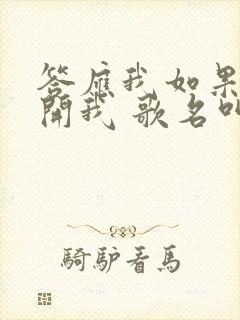 答應我如果
開我 歌名叫
騎驢看馬